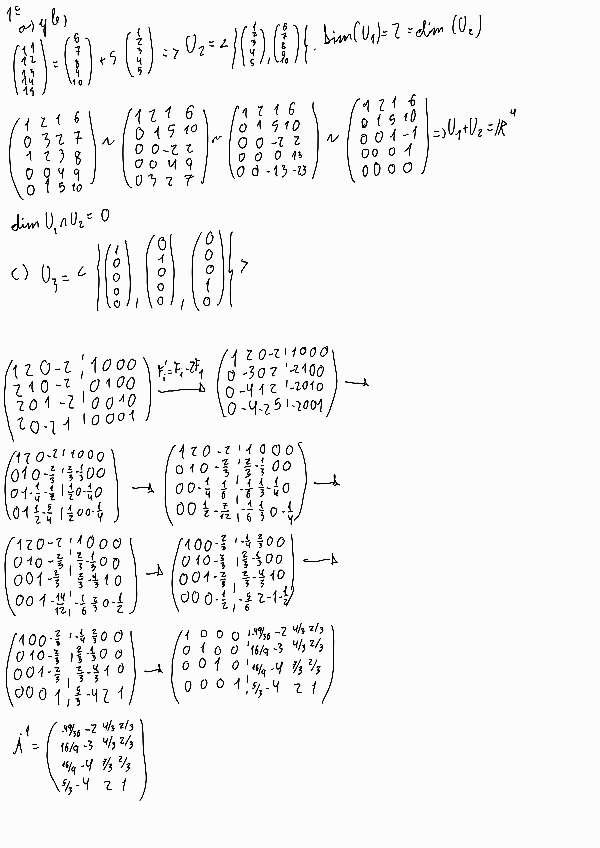 1º
a) y b)
(11 12 13 14 15) = (6 7 8 9 10) + 5 (1 2 3 4 5) => U₂ = < { (1 2 3 4 5), (6 7 8 9 10) } . Dim(U₁) = 2 = dim (U₂)
(1 2 1 6 / 0 3 2 7 / 1 2 3 8 / 0 0 4 9 / 0 1 5 10) ~ (1 2 1 6 / 0 1 5 10 / 0 0 -2 2 / 0 0 4 9 / 0 3 2 7) ~ (1 2 1 6 / 0 1 5 10 / 0 0 -2 2 / 0 0 0 13 / 0 0 -13 -23) ~ (1 2 1 6 / 0 1 5 10 / 0 0 1 -1 / 0 0 0 1 / 0 0 0 0) => U₁+U₂ = ℝ⁴
dim U₁∩U₂ = 0
c) U₃ = < { (1 0 0 0 0), (0 1 0 0 0), (0 0 0 1 0) } >
(1 2 0 -2 | 1 0 0 0 / 2 1 0 -2 | 0 1 0 0 / 2 0 1 -2 | 0 0 1 0 / 2 0 -2 1 | 0 0 0 1) Fᵢ' = Fᵢ - 2F₁ → (1 2 0 -2 | 1 0 0 0 / 0 -3 0 2 | -2 1 0 0 / 0 -4 1 2 | -2 0 1 0 / 0 -4 -2 5 | -2 0 0 1) →
(1 2 0 -2 | 1 0 0 0 / 0 1 0 -2/3 | 2/3 -1/3 0 0 / 0 1 -1/4 -1/2 | 1/2 0 -1/4 0 / 0 1 1/2 -5/4 | 1/2 0 0 -1/4) → (1 2 0 -2 | 1 0 0 0 / 0 1 0 -2/3 | 2/3 -1/3 0 0 / 0 0 -1/4 1/6 | -1/6 1/3 -1/4 0 / 0 0 1/2 -7/12 | -1/6 1/3 0 -1/4) →
(1 2 0 -2 | 1 0 0 0 / 0 1 0 -2/3 | 2/3 -1/3 0 0 / 0 0 1 -2/3 | 2/3 -4/3 1 0 / 0 0 1 -14/12 | -1/6 2/3 0 -1/2) → (1 0 0 -2/3 | -1/4 2/3 0 0 / 0 1 0 -2/3 | 2/3 -1/3 0 0 / 0 0 1 -2/3 | 2/3 -4/3 1 0 / 0 0 0 -1/2 | -5/6 2 -1 -1/2) →
(1 0 0 -2/3 | -1/4 2/3 0 0 / 0 1 0 -2/3 | 2/3 -1/3 0 0 / 0 0 1 -2/3 | 2/3 -4/3 1 0 / 0 0 0 1 | 5/3 -4 2 1) → (1 0 0 0 | -49/36 -2 4/3 2/3 / 0 1 0 0 | 16/9 -3 4/3 2/3 / 0 0 1 0 | 16/9 -4 7/3 2/3 / 0 0 0 1 | 5/3 -4 2 1)
A⁻¹ = (-49/36 -2 4/3 2/3 / 16/9 -3 4/3 2/3 / 16/9 -4 7/3 2/3 / 5/3 -4 2 1)